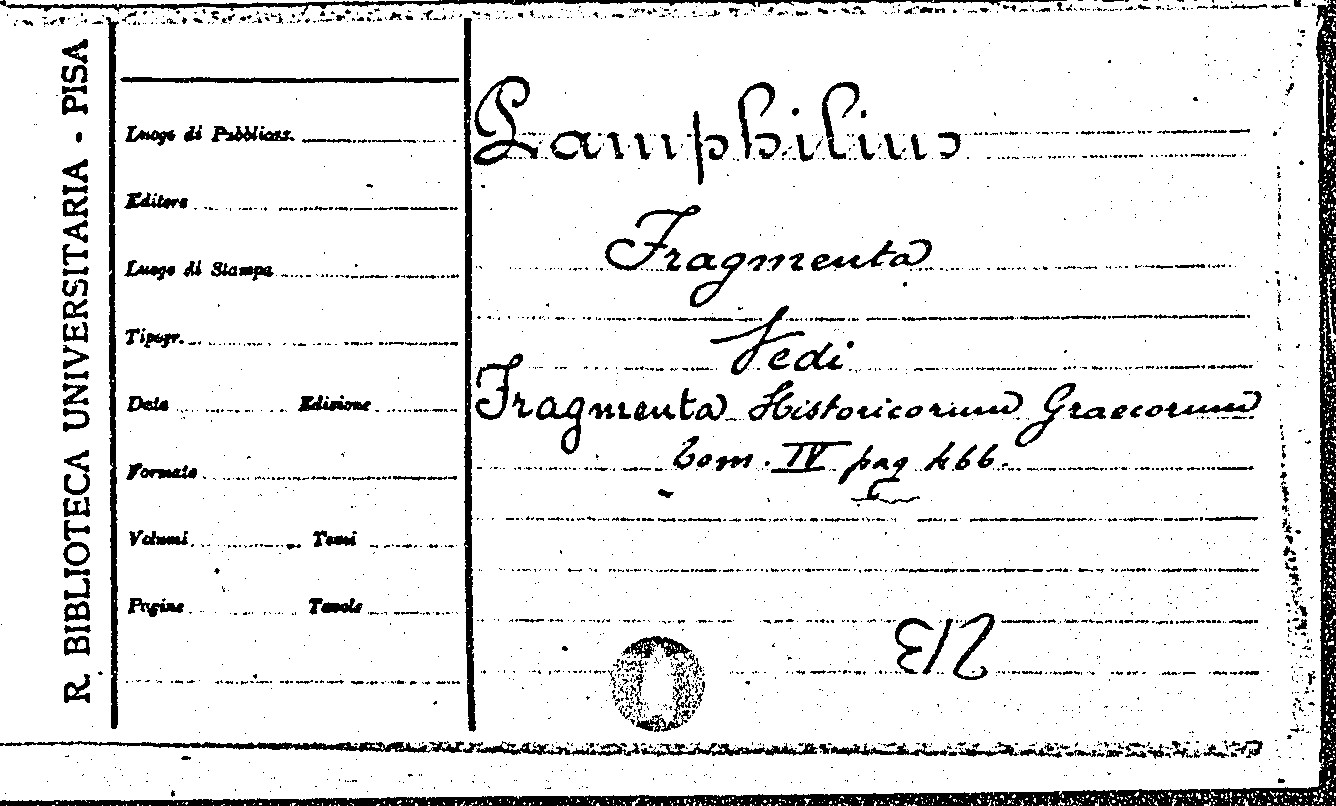 R. BIBLIOTECA UNIVERSITARIA - PISA
Luogo di Pubblicaz.
Editore
Luogo di Stampa
Tipogr.
Data Edizione
Formato
Volumi Tomi
Pagine Tavole
Pamphilius
Fragmenta
Vedi
Fragmenta Historicorum Graecorum
tom. IV pag 466.
213